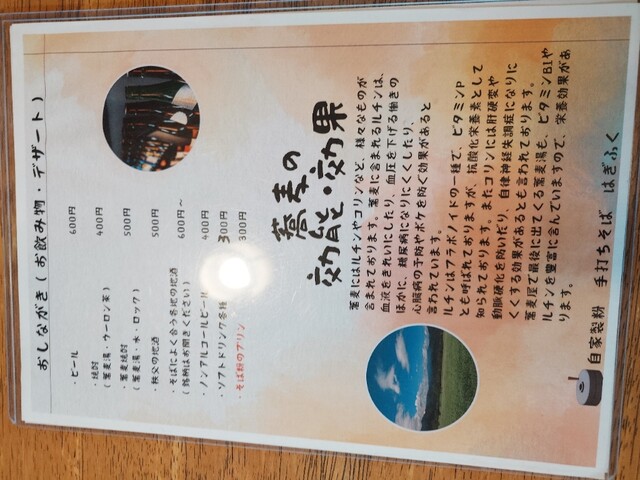 おしながき(お飲み物・デザート)
・ビール 600円
・焼酎 400円
(蕎麦湯・ウーロン茶)
・蕎麦焼酎 500円
(蕎麦湯・水・ロック)
・秩父の地酒 500円
・そばによく合う各地の地酒 600円~
(銘柄はお聞きください)
・ノンアルコールビール 400円
・ソフトドリンク各種 300円
・そば粉のプリン 300円
蕎麦の
効能・効果
蕎麦にはルチンやコリンなど、様々なものが
含まれております。蕎麦に含まれるルチンは、
血液をきれいにしたり、血圧を下げる働きの
ほかに、糖尿病になりにくくしたり、
心臓病の予防やボケを防ぐ効果があると
言われています。
ルチンはフラボノイドの一種で、ビタミンP
とも呼ばれておりますが、抗酸化栄養素として
知られております。またコリンには肝硬変や
動脈硬化を防いだり、自律神経失調症になりに
くくする効果があるとも言われております。
蕎麦屋で最後に出てくる蕎麦湯も、ビタミンB1や
ルチンを豊富に含んでいますので、栄養効果があ
ります。
自家製粉 手打ちそば はぎふく